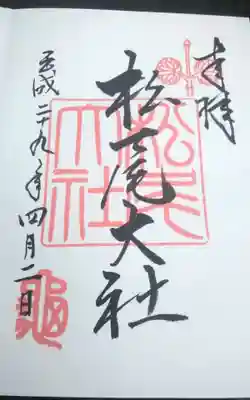 奉拝
松尾大社
松尾大社
平成二十九年四月二日
亀